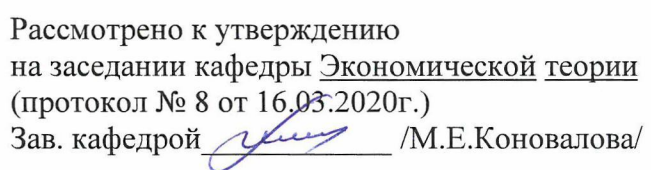 Рассмотрено к утверждению
на заседании кафедры Экономической теории
(протокол № 8 от 16.03.2020г.)
Зав. кафедрой_____________ /М.Е.Коновалова/